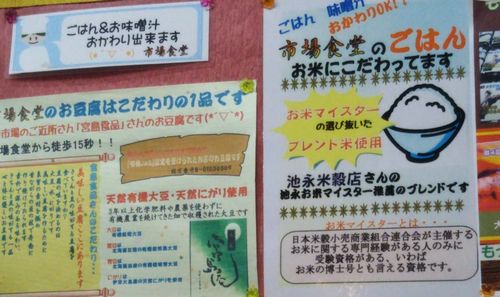 ごはん&お味噌汁
おかわり出来ます
市場食堂
市場食堂のお豆腐はこだわりの1品です
市場のご近所さん「宮島食品」さんのお豆腐です
市場食堂から徒歩15秒!!
天然有機大豆・天然にがり使用
3年以上化学肥料や農薬を使わずに
有機農業を続けてきた畑で収穫された大豆です
宮島食品さんのこだわり
ごはん 味噌汁
おかわりOK!!
市場食堂のごはん
お米にこだわってます
お米マイスター
の選び抜いた
ブレンド米使用
池永米穀店さんの
池永お米マイスター推薦のブレンドです
お米マイスターとは・・・
日本米穀小売商業組合連合会が主催する
お米に関する専門経験がある人のみに
受験資格がある、いわば
お米の博士号とも言える資格です。